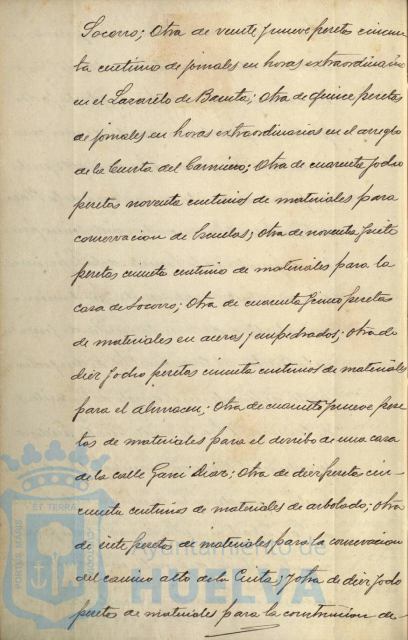 Socorro; Otra de veinte y nueve pesetas cincuen
ta centimos de jornales en horas extraordinarias
en el Lazareto de Bacuta; Otra de quince pesetas
de jornales en horas extraordinarios en el arreglo
de la Cuesta del Carnicero; Otra de cuarenta y ocho
pesetas noventa centimos de materiales para
conservacion de Escuelas; otra de noventa y siete
pesetas cincuenta centimos de materiales para la
casa de Socorro; Otra de cuarenta y cinco pesetas
de materiales en aceras y empedrados; otra de
diez y ocho pesetas cincuenta centimos de materiales
para el almacen; Otra de cuarenta y nueve pese
tas de materiales para el derribo de una casa
de la calle Garci Diaz; Otra de diez pesetas cin-
cuenta centimos de materiales de arbolado; otra
de siete pesetas de materiales para la conservacion
del camino alto de la Cinta; y otra de diez y ocho
pesetas de materiales para la construccion de-
Ayuntamiento de
HUELVA
PORTUS MARIS
ET TERRAE
CUSTODIA